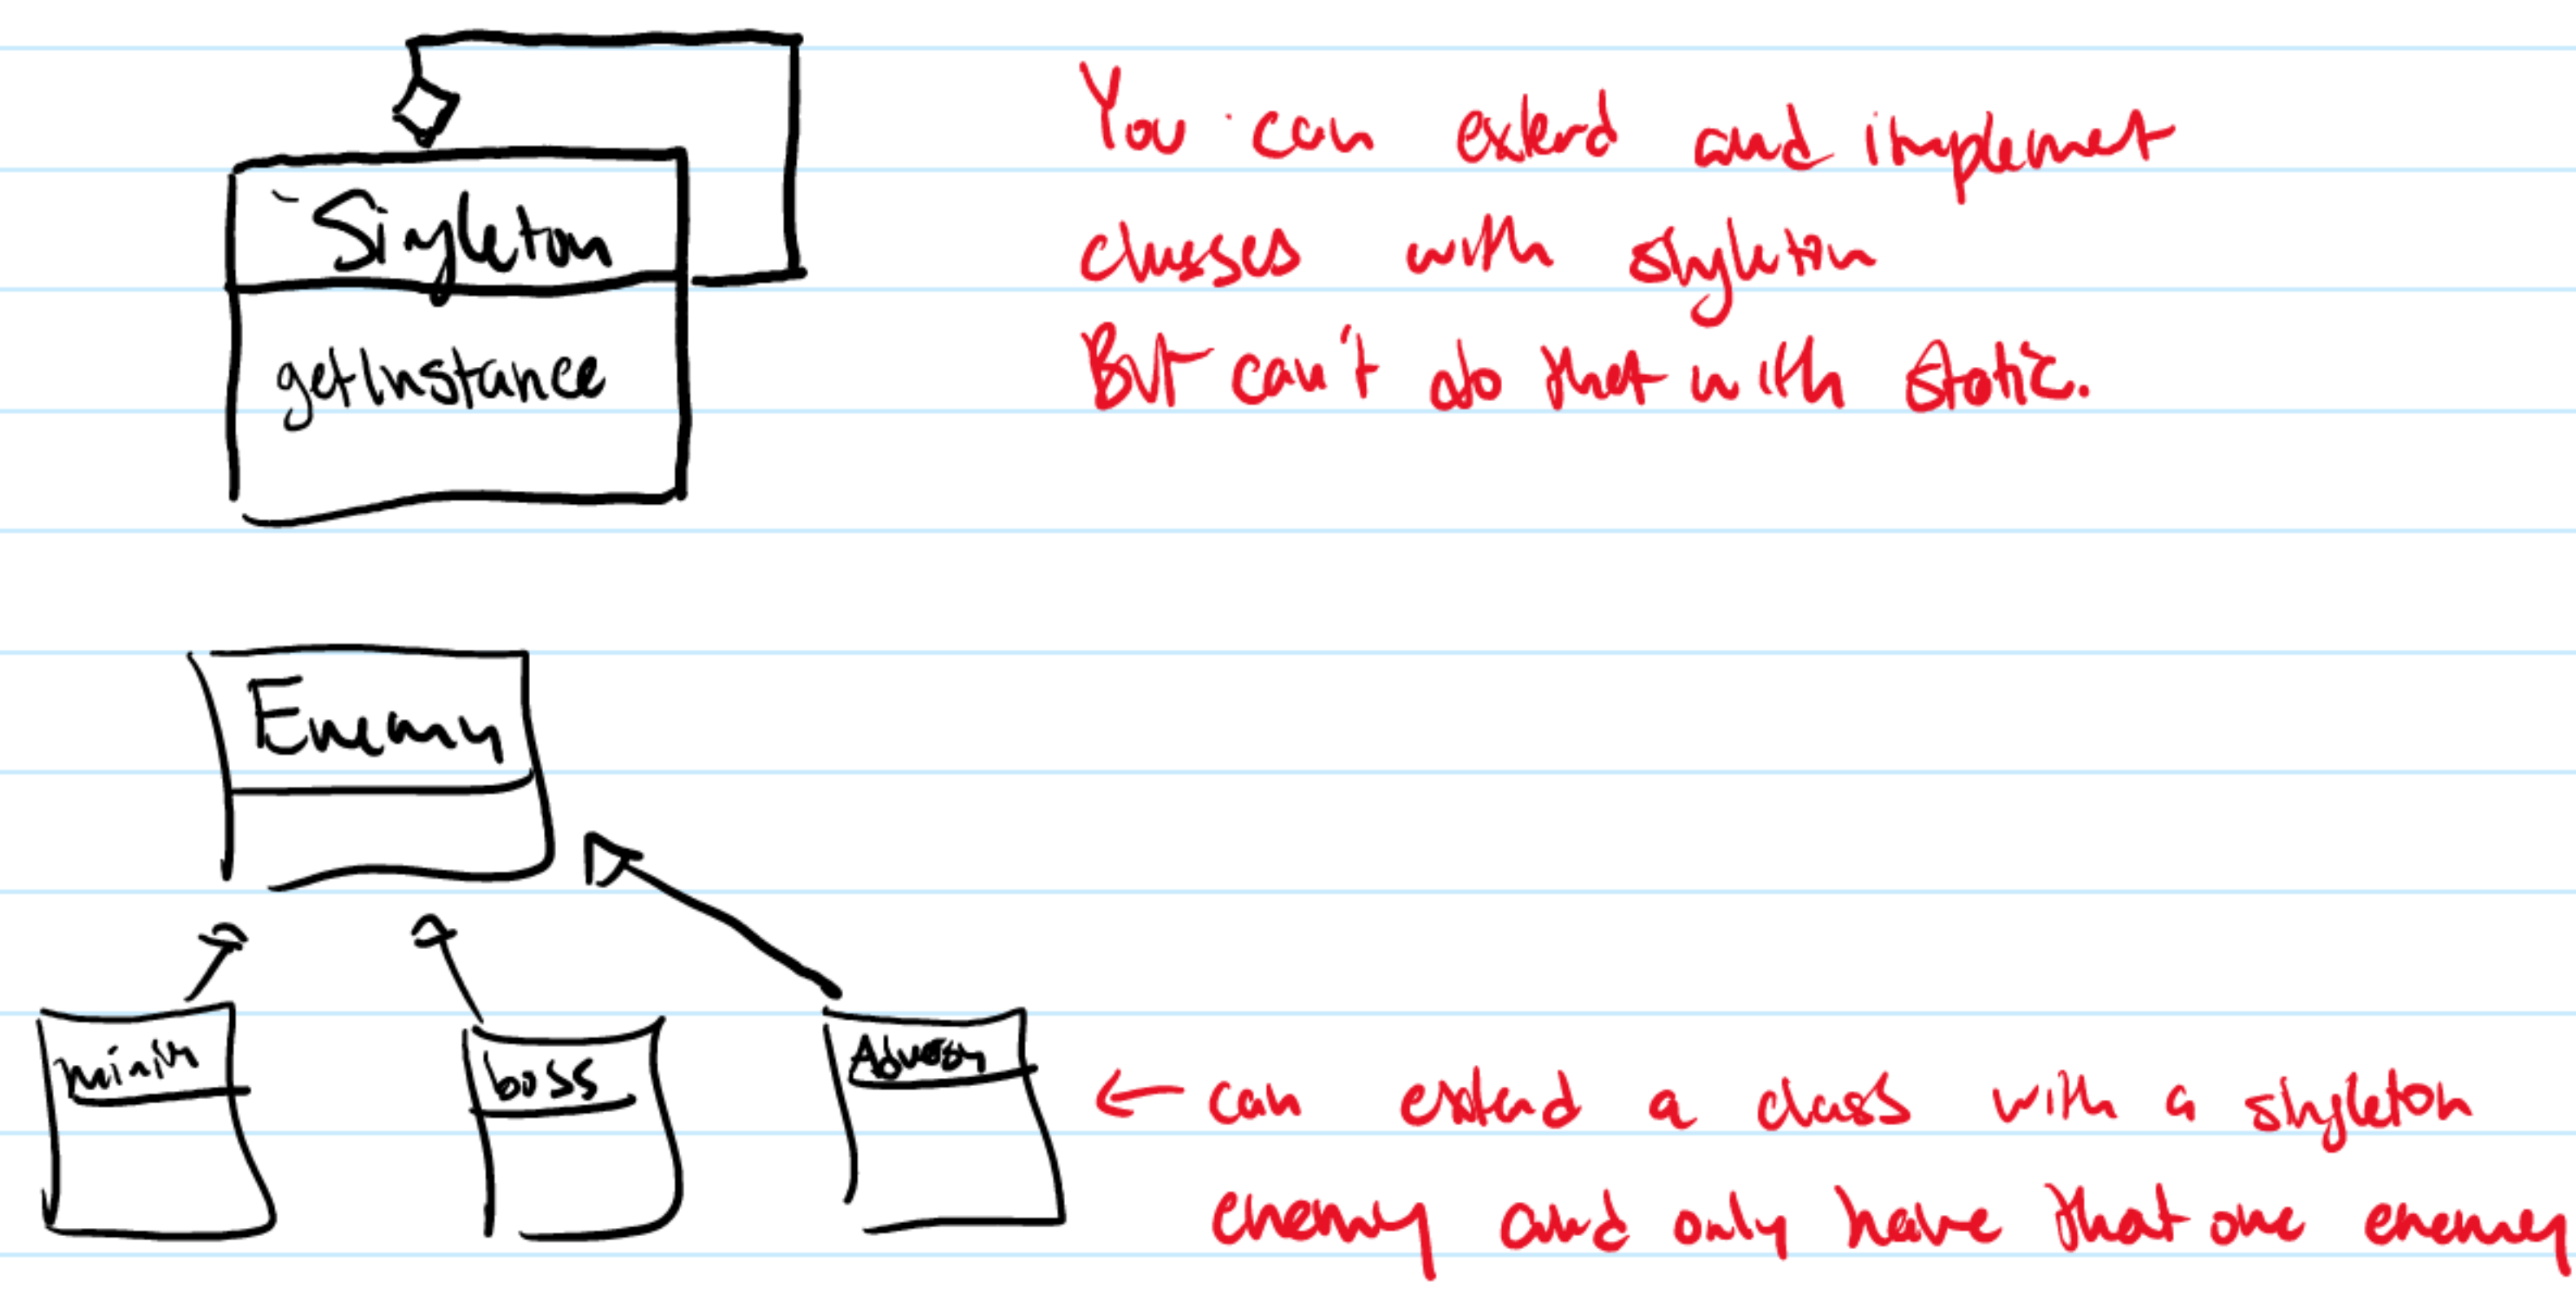 Singleton
getInstance
You can extend and implement
classes with singleton
But can't do that with static.
Enemy
minion
boss
← can extend a class with a singleton
enemy and only have that one enemy